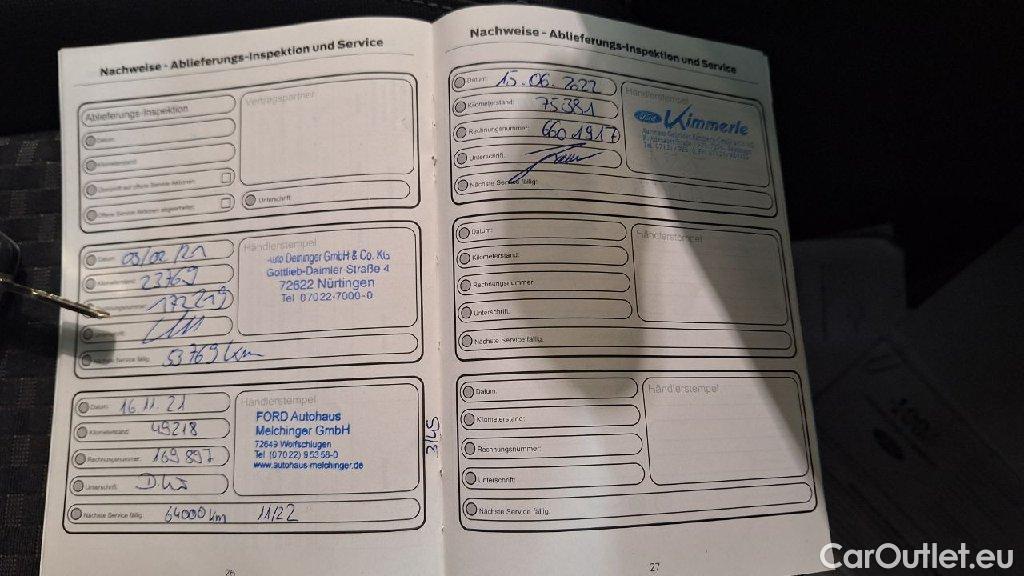 Nachweise - Ablieferungs-Inspektion und Service
Ablieferungs-Inspektion
Vertragspartner
Datum:
Kilometerstand:
Unterschrift:
Datum: 09/02/21
Kilometerstand: 23769
172219
Nächste Service fällig: 53769 km
Händlerstempel
Auto Deininger GmbH & Co. KG
Gottlieb-Daimler-Straße 4
72622 Nürtingen
Tel. 07022-7000-0
Datum: 16.11.21
Kilometerstand: 49218
Rechnungsnummer: 169 897
Unterschrift:
Nächste Service fällig: 64000 km 11/22
Händlerstempel
FORD Autohaus
Melchinger GmbH
72649 Wolfschlugen
Tel. (07022) 95358-0
www.autohaus-melchinger.de
26
Nachweise - Ablieferungs-Inspektion und Service
Datum: 15.06.2022
Kilometerstand: 75381
Rechnungsnummer: 6601917
Unterschrift:
Nächste Service fällig:
Händlerstempel
Ford Kimmerle
Datum:
Kilometerstand:
Rechnungsnummer:
Unterschrift:
Nächste Service fällig:
Händlerstempel
Datum:
Kilometerstand:
Rechnungsnummer:
Unterschrift:
Nächste Service fällig:
Händlerstempel
27
CarOutlet.eu